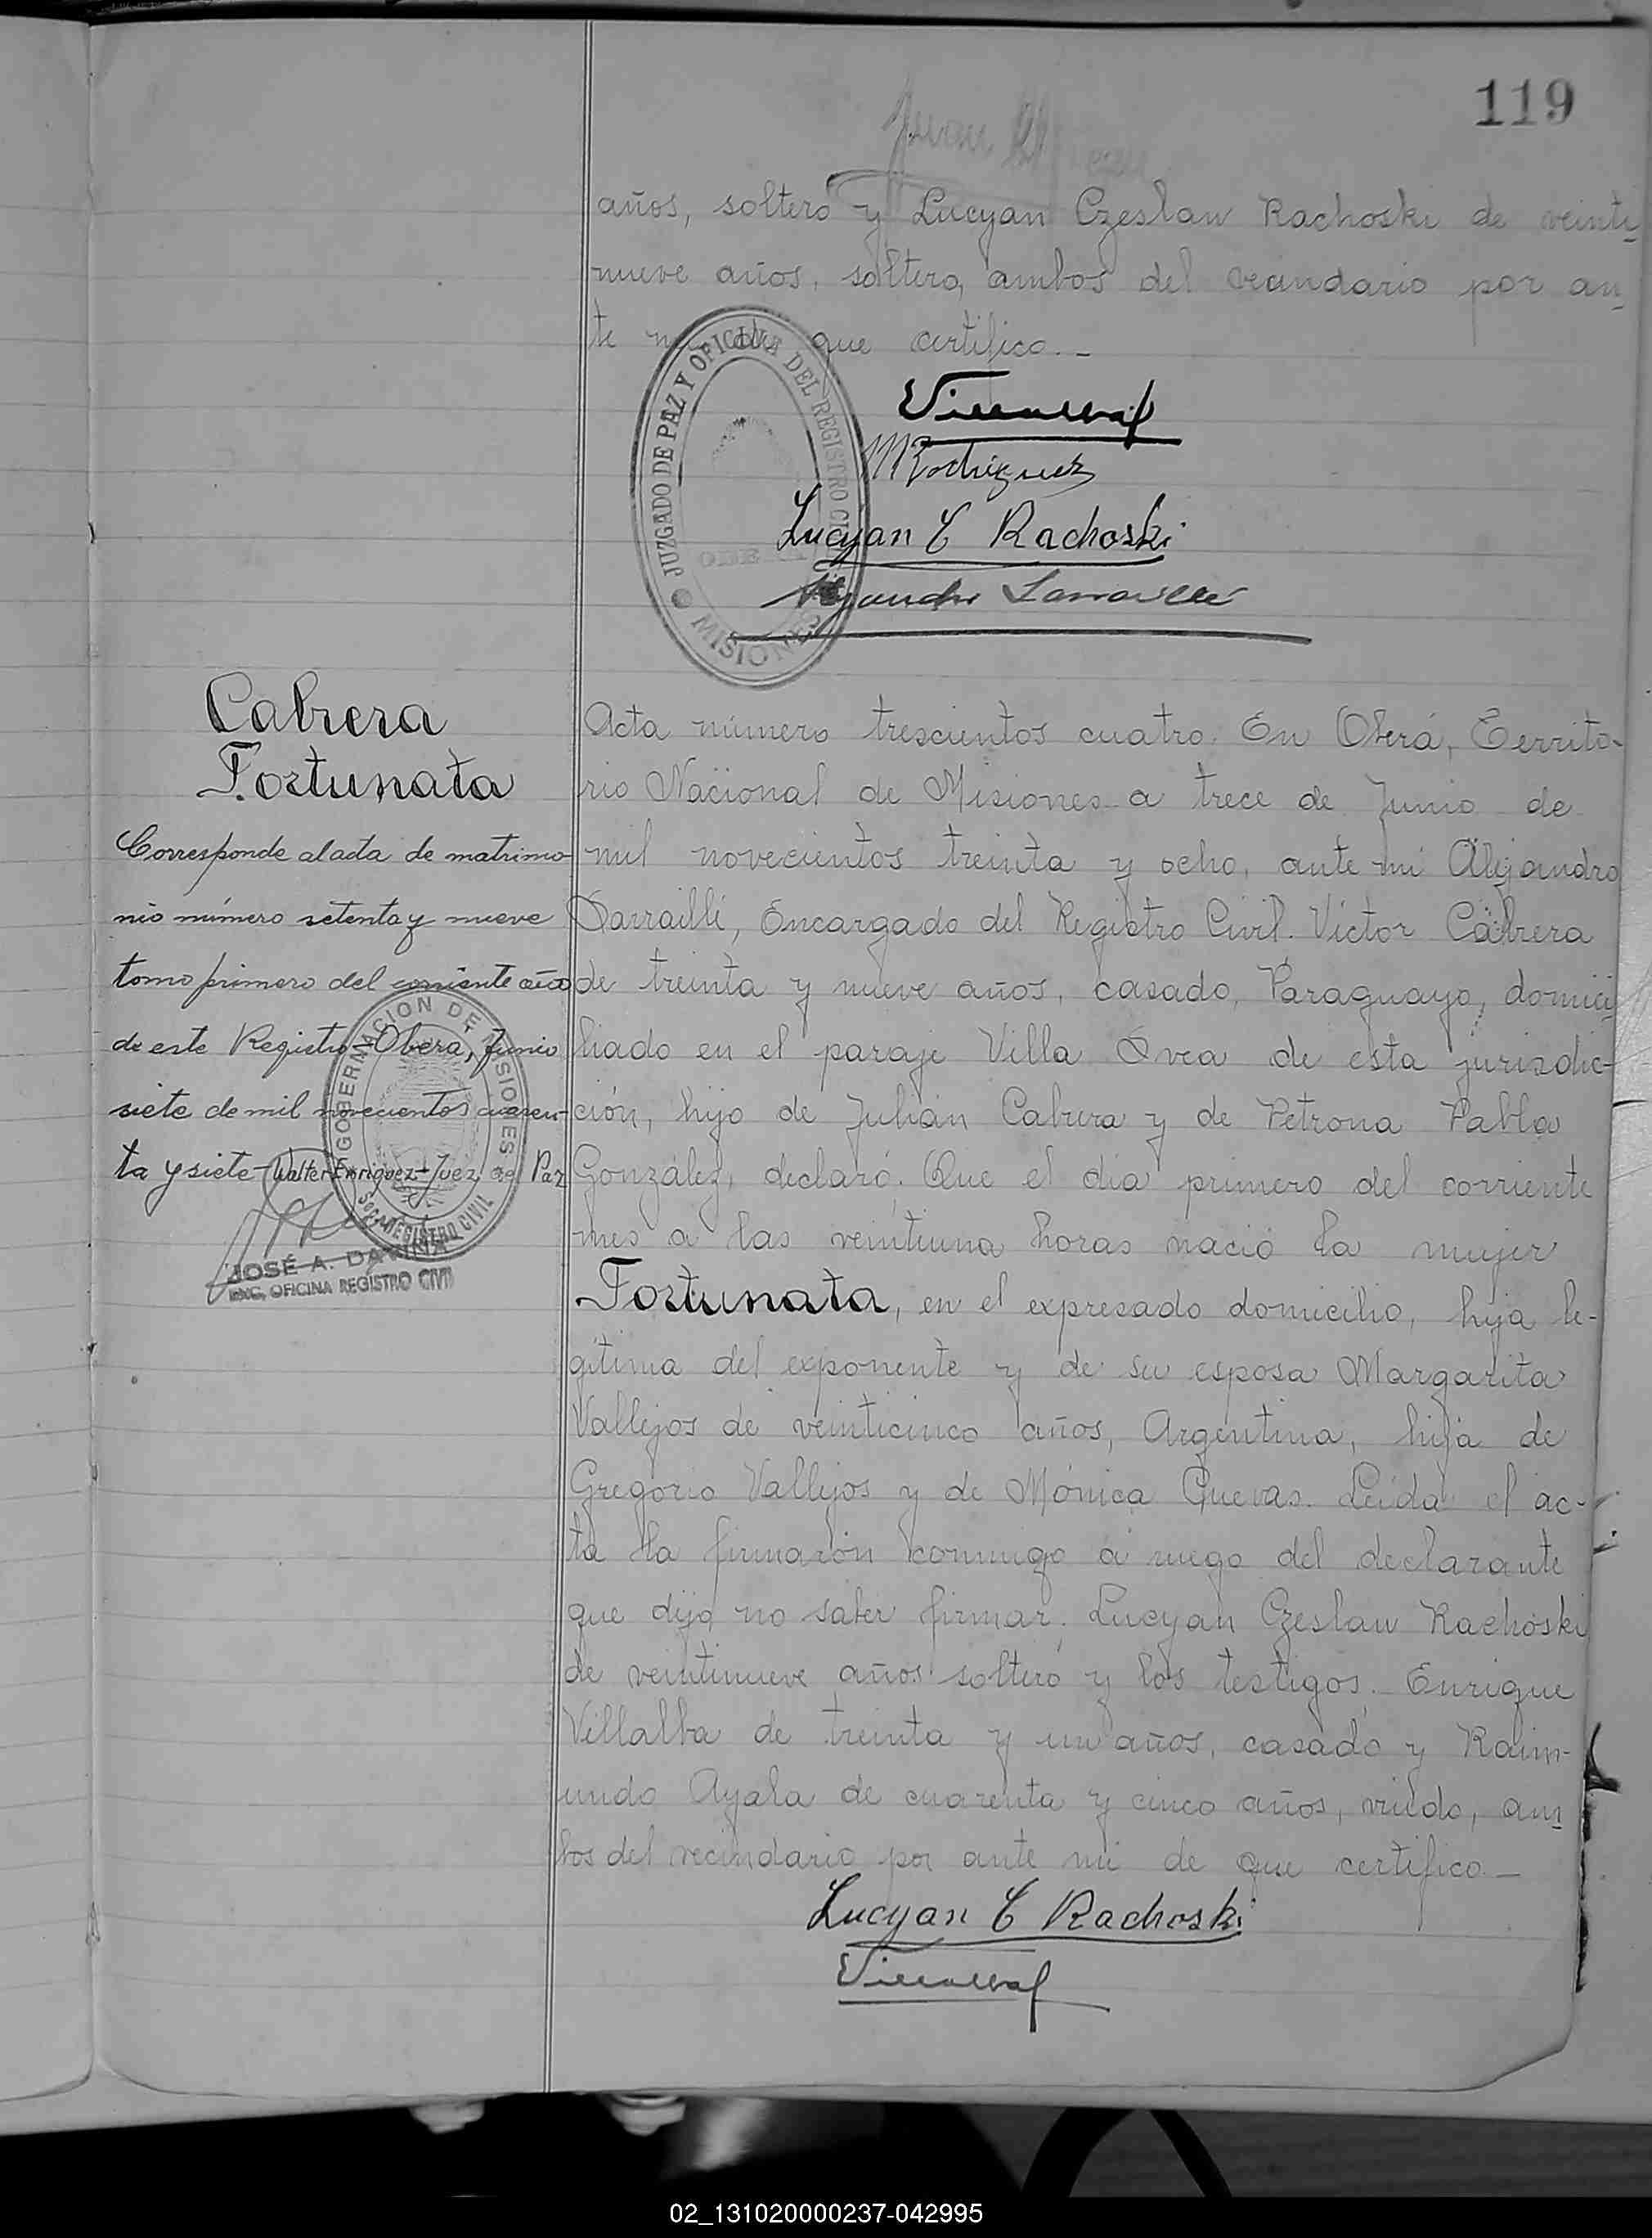 119
años, soltero y Lucyan Czeslaw Rachoski de veinti-
nueve años, soltero, ambos del vecindario por an-
te mi de que certifico.-
JUZGADO DE PAZ Y OFICINA DEL REGISTRO CIVIL
MISIONES
MRodriguez
Lucyan C Rachoski
Cabrera
Fortunata
Corresponde al acta de matrimo-
nio número setenta y nueve
tomo primero del corriente año
de este Registro - Oberá, Junio
siete de mil novecientos cuaren-
ta y siete - Walter Enriquez - Juez de Paz
GOBERNACION DE MISIONES
REGISTRO CIVIL
JOSÉ A.
ENC. OFICINA REGISTRO CIVIL
Acta número trescientos cuatro. En Oberá, Territo-
rio Nacional de Misiones a trece de Junio de
mil novecientos treinta y ocho, ante mi Alejandro
Larrailli, Encargado del Registro Civil. Víctor Cabrera
de treinta y nueve años, casado, Paraguayo, domici-
liado en el paraje Villa Svea de esta jurisdic-
ción, hijo de Julián Cabrera y de Petrona Pabla
González, declaró: Que el día primero del corriente
mes a las veintiuna horas nació la mujer
Fortunata, en el expresado domicilio, hija le-
gítima del exponente y de su esposa Margarita
Vallejos de veinticinco años, Argentina, hija de
Gregorio Vallejos y de Mónica Cuevas. Leída el ac-
ta la firmarón conmigo a ruego del declarante
que dijo no saber firmar. Lucyan Czeslaw Rachoski
de veintinueve años soltero y los testigos. Enrique
Villalba de treinta y un años, casado y Raim-
undo Ayala de cuarenta y cinco años, viudo, am-
bos del vecindario por ante mi de que certifico -
Lucyan C Rachoski
02_131020000237-042995